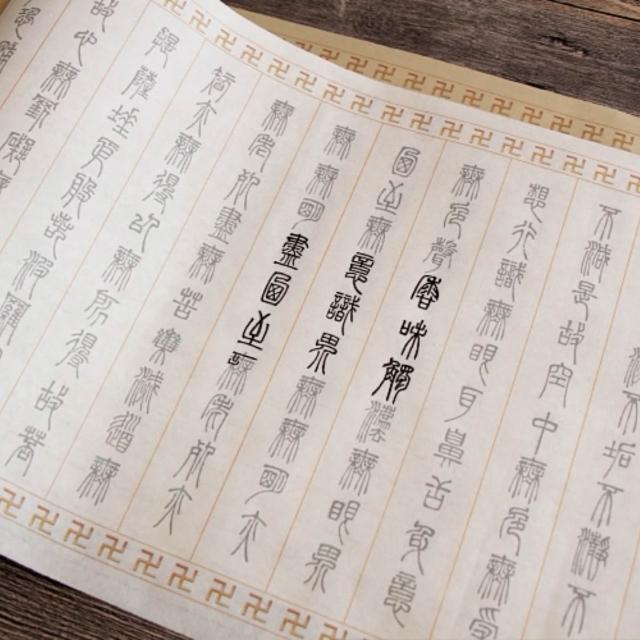 滅不垢不淨不
不減是故空中無色無受
想行識無眼耳鼻舌身意
無色聲香味觸法無眼界
乃至無意識界無無明亦
無無明盡乃至無老死亦
無老死盡無苦集滅道無
智亦無得以無所得故菩
提薩埵依般若波羅
故心無罣礙無